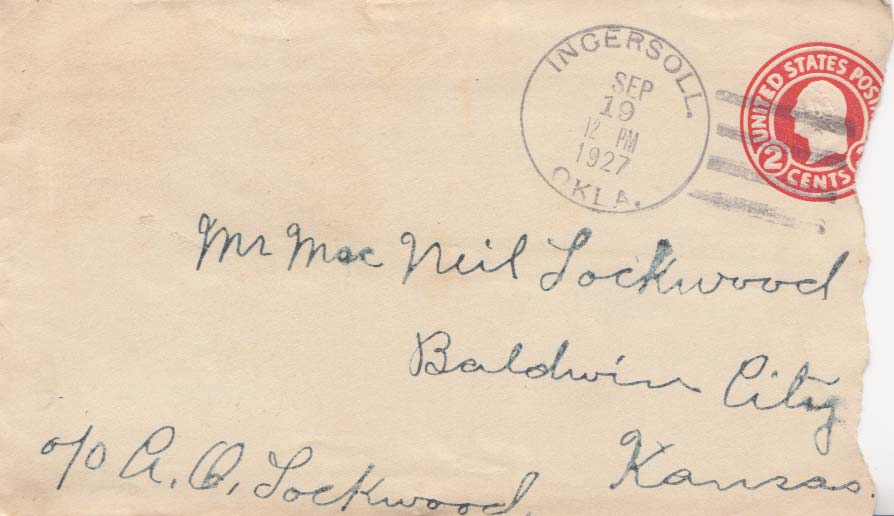 INGERSOLL.
SEP
19
12 PM
1927
OKLA.
UNITED STATES POSTA
2 CENTS
Mr Mac Neil Lockwood
Baldwin City
Kansas.
c/o A. O. Lockwood,